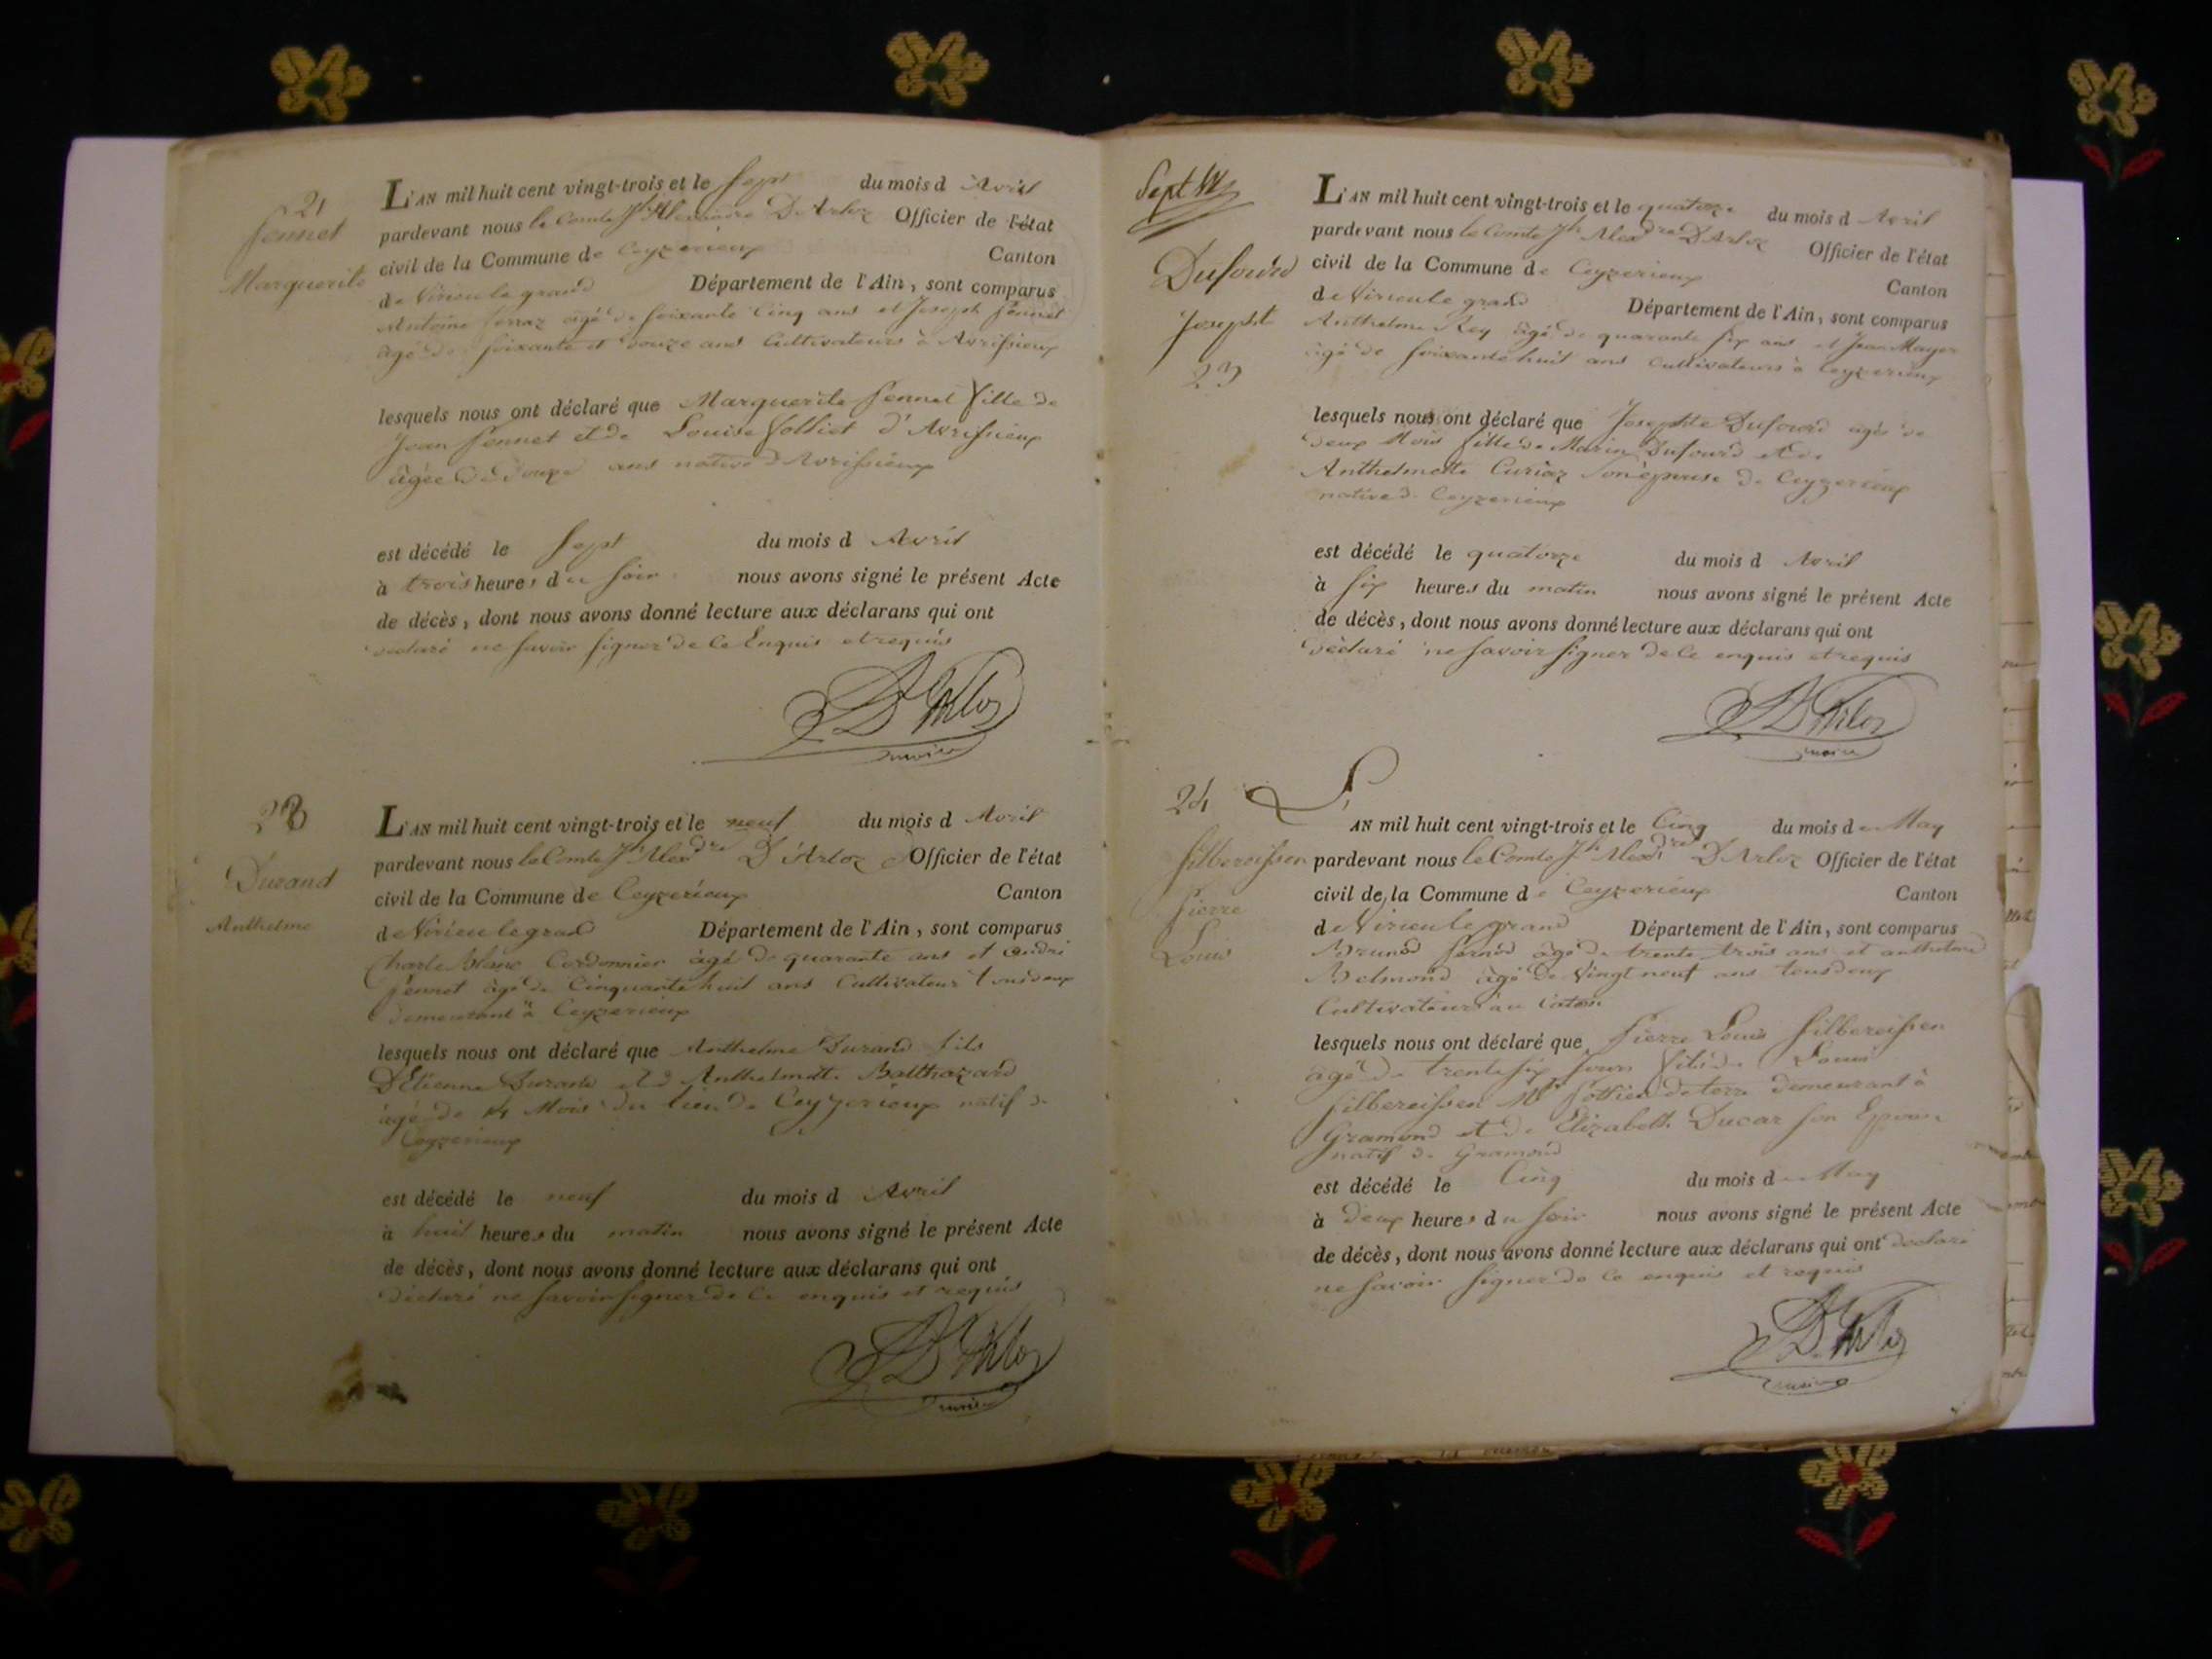 21
Pennet
Marguerite
L'AN mil huit cent vingt-trois et le sept du mois d Avril
pardevant nous le Comte Jh Alexandre D'Arloz Officier de l'état
civil de la Commune de Ceyzerieux Canton
de Virieu le grand Département de l'Ain, sont comparus
Antoine ferraz agé de soixante Cinq ans et Joseph Pennet
agé de soixante et douze ans Cultivateurs à Avrissieux
lesquels nous ont déclaré que Marguerite Pennet fille de
Jean Pennet et de Louise folliet d'Avrissieux
âgée de douze ans native d'Avrissieux
est décédé le sept du mois d Avril
à trois heures du soir nous avons signé le présent Acte
de décès, dont nous avons donné lecture aux déclarans qui ont
déclaré ne savoir signer de ce Enquis et requis
D'Arloz
maire
Durand
Anthelme
L'AN mil huit cent vingt-trois et le neuf du mois d Avril
pardevant nous le Comte Jh Alexdre D'Arloz Officier de l'état
civil de la Commune de Ceyzerieux Canton
de Virieu le grand Département de l'Ain, sont comparus
Charle Blanc Cordonnier âgé de quarante ans et andré
Pennet âgé de Cinquante huit ans Cultivateur tous deux
demeurant à Ceyzerieux
lesquels nous ont déclaré que Anthelme Durand fils
D'Etienne Durand et d Anthelmette Balthazard
âgé de 4 Mois du lieu de Ceyzerieux natif de
Ceyzerieux
est décédé le neuf du mois d Avril
à huit heures du matin nous avons signé le présent Acte
de décès, dont nous avons donné lecture aux déclarans qui ont
déclaré ne savoir signer de ce enquis et requis
D'Arloz
maire
Sept
Dufourd
Josephte
23
L'AN mil huit cent vingt-trois et le quatorze du mois d Avril
pardevant nous le Comte Jh Alexdre D'Arloz Officier de l'état
civil de la Commune de Ceyzerieux Canton
de Virieu le grand Département de l'Ain, sont comparus
Anthelme Rey âgé de quarante six ans et Jean Mayer
âgé de soixante huit ans Cultivateurs à Ceyzerieux
lesquels nous ont déclaré que Josephte Dufourd âgée de
deux Mois fille de Marin Dufourd et de
Anthelmette Curiaz son épouse de Ceyzerieux
native de Ceyzerieux
est décédé le quatorze du mois d Avril
à six heures du matin nous avons signé le présent Acte
de décès, dont nous avons donné lecture aux déclarans qui ont
déclaré ne savoir signer de ce enquis et requis
D'Arloz
maire
24
Silbereissen
Pierre
Louis
L'AN mil huit cent vingt-trois et le Cinq du mois de May
pardevant nous le Comte Jh Alexdre D'Arloz Officier de l'état
civil de la Commune de Ceyzerieux Canton
de Virieu le grand Département de l'Ain, sont comparus
âgé de trente trois ans et anthelme
Belmond âgé de Vingt neuf ans tous deux
Cultivateurs au
lesquels nous ont déclaré que Pierre Louis Silbereissen
âgé de trente six jours fils de Louis
Silbereissen Md Pottier de terre demeurant à
Gramond et de Elizabeth Ducar son Epouse
natif de Gramond
est décédé le Cinq du mois de May
à deux heures du soir nous avons signé le présent Acte
de décès, dont nous avons donné lecture aux déclarans qui ont declaré
ne savoir signer de ce enquis et requis
D'Arloz
maire